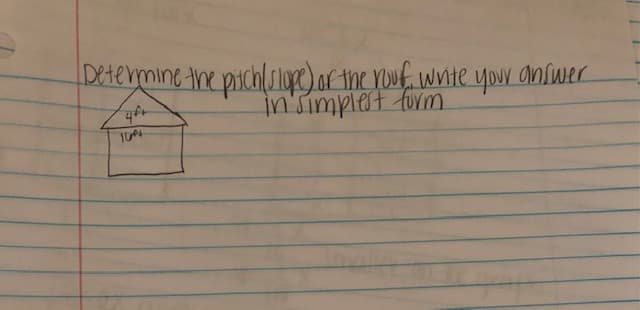 Determine the pitch(slope) of the roof. write your answer
in simplest form
4ft
10ft